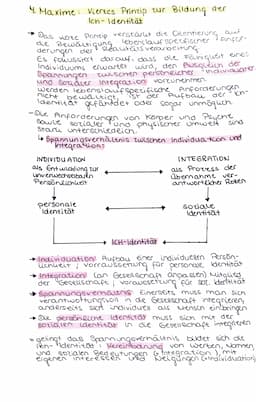 4. Maxime: Viertes Prinzip zur Bildung der
Ich-Identität
→ Das vierte Prinzip verstärkt die Orientierung auf
die Bewältigung lebenslaufspezifischer Anfor-
derungen der Realitätsverarbeitung
Es fokussiert darauf, dass die Fähigkeit eines
Individuums erwartet wird, den Ausgleich der
Spannungen zwischen persönlicher Individuation
und sozialer Integration vorzunehmen.
Werden lebenslaufspezifische Anforderungen
nicht bewältigt, ist der Aufbau der Ich-
Identität gefährdet oder sogar unmöglich
→ Die Anforderungen von Körper und Psyche
sowie sozialer und physischer Umwelt sind
stark unterschiedlich.
→ Spannungsverhältnis zwischen Individuation und
Integration:
INDIVIDUATION
als Entwicklung zur
unverwechselbaren
Persönlichkeit
INTEGRATION
als Prozess der
Übernahme verant-
wortlicher Rollen
personale
Identität
soziale
Identität
ICH-Identität
→ Individuation: Aufbau einer individuellen Persön-
lichkeit, Voraussetzung für personale Identität
→ Integration: (an Gesellschaft anpassen) Mitglied
der Gesellschaft, Voraussetzung für soz. Identität
→ Spannungsverhältnis: Einerseits muss man sich
verantwortungsvoll in die Gesellschaft integrieren,
anderseits sich individuell als Menschen einbringen
→ Die persönliche Identität muss sich mit der
sozialen Identität in die Gesellschaft integrieren
→ gelingt das Spannungsverhältnis bildet sich die
Ich-Identität: Vereinbarung von Werten, Normen
und sozialen Bedeutungen (→ Integration), mit
eigenen Interessen und Neigungen (→ Individuation)